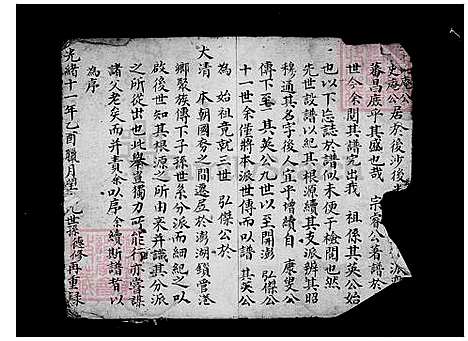 史庵公居於後沙後
蕃昌庶乎其盛也哉 宗睿公著譜於
世今余閱其譜究出我 祖係其英公始
也以下忘誌於譜似未便于檢閱也然
先世設譜以紀其根源續其支派辨其昭
穆通其名字後人宜乎增續自 康奭公
傳下至 其英公九世以至開澎 弘傑公
十一世余僅將本派世傳而以譜 其英公
為 始祖竟就三世 弘傑公於
大清 本朝國秀之間遷居於澎湖鎖管港
鄉聚族傳下子孫世系分派而細紀之以
啟後世知其根源之所由來并識其分派
之所從出也此舉豈獨力可能行亦嘗謀
諸父老矣而并責余以序余續斯譜者以
為序
光緒十一年乙酉臘月 九世孫德修再重録